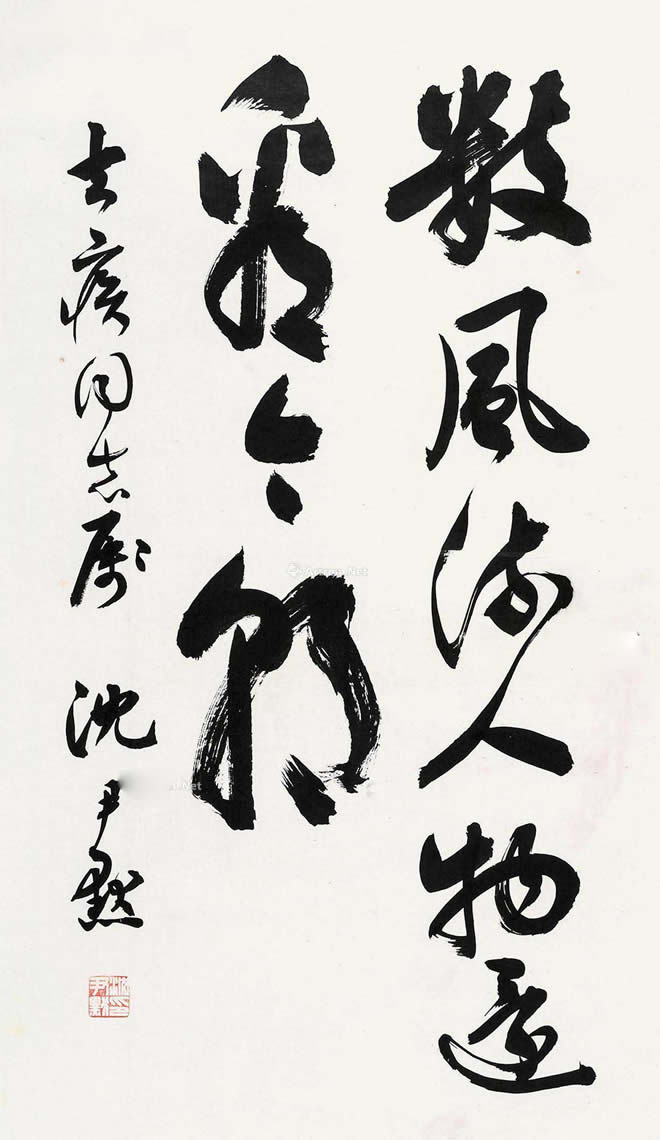 数風流人物還
看今朝
去疾同志属 沈尹默
沈尹默印
Artron.Net